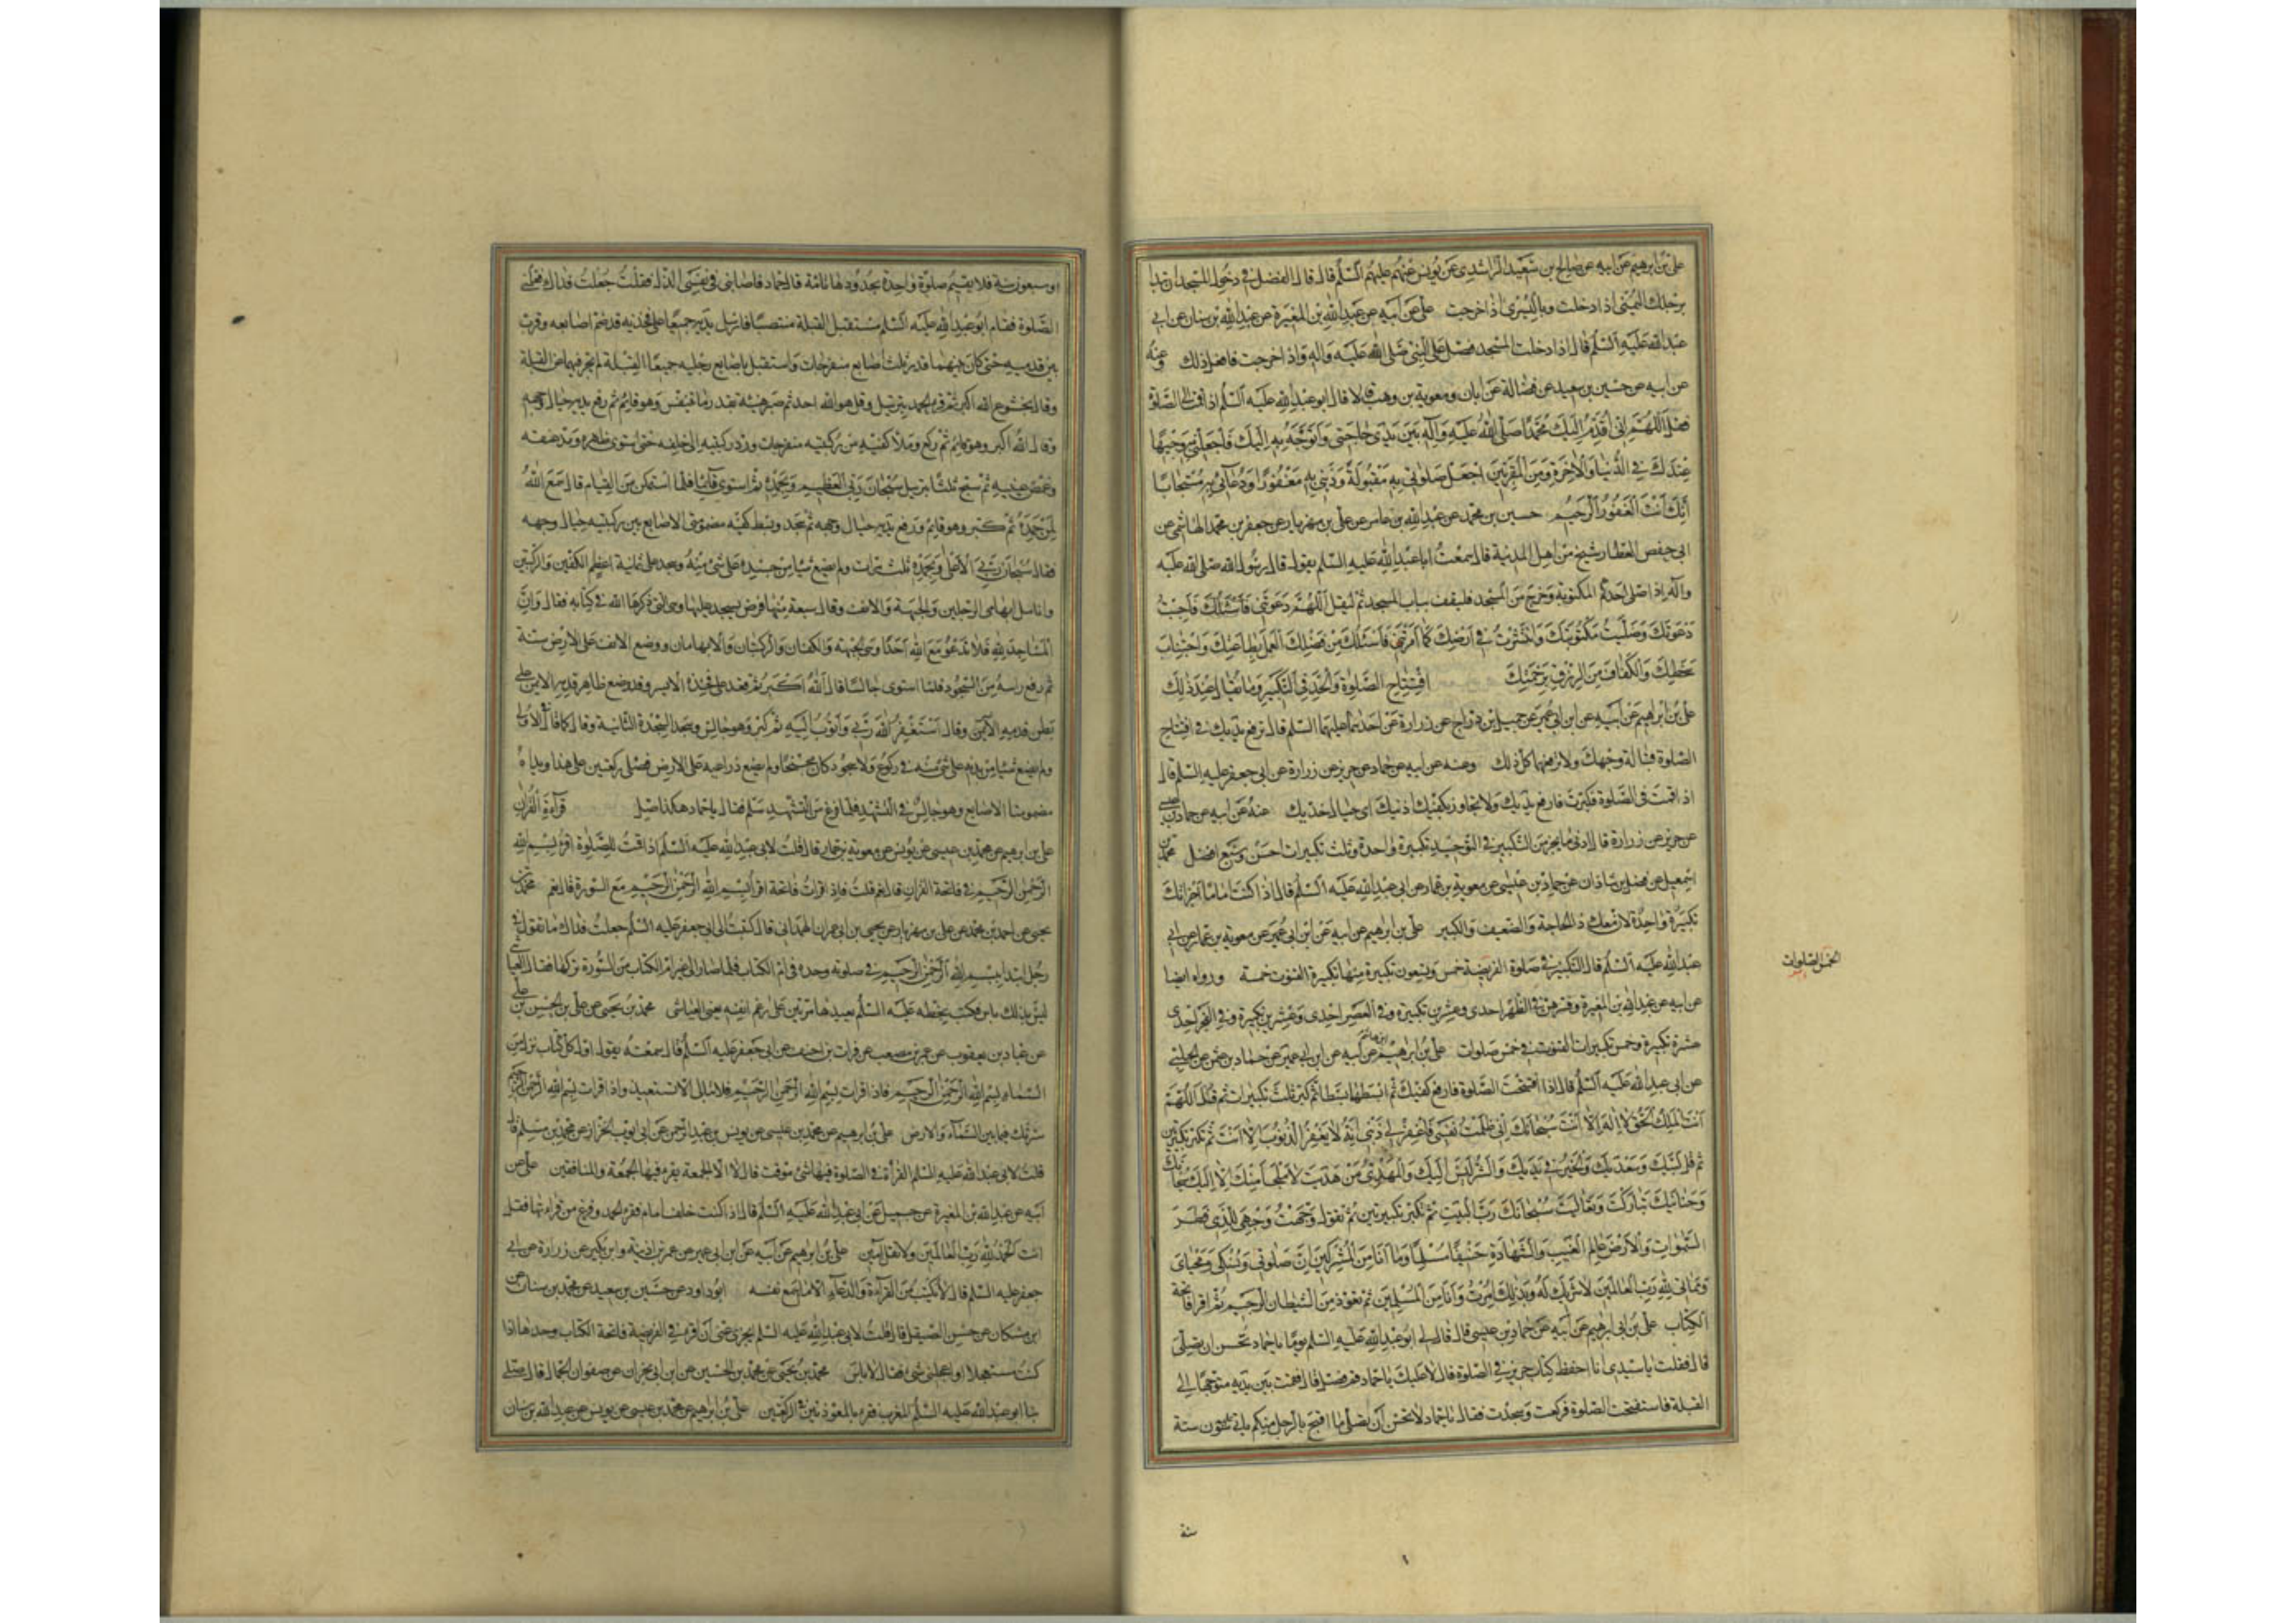 علي بن ابرهيم عن ابيه عن صالح بن سعيد الراشدي عن يونس عنهم عليهم السلم قال قال الفضل في دخول المسجد ان تبدا
برجلك اليمنى اذا دخلت وباليسرى اذا خرجت علي عن ابيه عن عبد الله بن المغيرة عن عبد الله بن سنان عن ابي
عبد الله عليه السلم قال اذا دخلت المسجد فصل على النبي صلى الله عليه واله واذا خرجت فافعل ذلك وعنه
عن ابيه عن حسين بن سعيد عن فضالة عن ابان ومعوية بن وهب قالا قال ابو عبد الله عليه السلم اذا قمت الى الصلوة
فقل اللهم اني اقدم اليك محمدا صلى الله عليه وآله بين يدي حاجتي واتوجه به اليك فاجعلني به وجيها
عندك في الدنيا والاخرة ومن المقربين اجعل صلوتي به مقبولة وذنبي به مغفورا ودعائي به مستجابا
انك انت الغفور الرحيم حسين بن محمد عن عبد الله بن عامر عن علي بن مهزيار عن جعفر بن محمد الهاشمي عن
ابي حفص العطار شيخ من اهل المدينة قال سمعت ابا عبد الله عليه السلم يقول قال رسول الله صلى الله عليه
وآله اذا صلى احدكم المكتوبة وخرج من المسجد فليقف بباب المسجد ثم ليقل اللهم دعوتني فاجبت
دعوتك وصليت مكتوبتك وانتشرت في ارضك كما امرتني فاسئلك من فضلك العمل بطاعتك واجتناب
سخطك والكفاف من الرزق برحمتك افتتاح الصلوة والحد في التكبير وما يقال عند ذلك
علي بن ابراهيم عن ابيه عن ابن ابي عمير عن جميل بن دراج عن زرارة عن احدهما عليهما السلم قال ترفع يديك في افتتاح
الصلوة قبالة وجهك ولا ترفعهما كل ذلك وعنه عن ابيه عن حماد عن حريز عن زرارة عن ابي جعفر عليه السلم قال
اذا قمت في الصلوة فكبرت فارفع يديك ولا تجاوز بكفيك اذنيك اي حيال خديك عنه عن ابيه عن حماد بن عيسى
عن حريز عن زرارة قال ادنى ما يجزي من التكبير في التوجيه تكبيرة واحدة وثلث تكبيرات احسن وسبع افضل محمد بن
اسمعيل عن فضل بن شاذان عن حماد بن عيسى عن معوية بن عمار عن ابي عبد الله عليه السلم قال اذا كنت اماما اجزأتك
تكبيرة واحدة لان معك ذا الحاجة والضعيف والكبير علي بن ابراهيم عن ابيه عن ابن ابي عمير عن معوية بن عمار عن ابي
عبد الله عليه السلم قال التكبير في صلوة الفريضة خمس وتسعون تكبيرة منها تكبيرة القنوت خمسة ورواه ايضا
عن ابيه عن عبد الله بن المغيرة وفسرهن في الظهر احدى وعشرين تكبيرة وفي العصر احدى وعشرين تكبيرة وفي الفجر احدى
عشرة تكبيرة وخمس تكبيرات القنوت في خمس صلوات علي بن ابراهيم بن هاشم عن ابيه عن ابن ابي عمير عن حماد بن عثمن عن الحلبي
عن ابي عبد الله عليه السلم قال اذا افتتحت الصلوة فارفع كفيك ثم ابسطهما بسطا ثم كبر ثلث تكبيرات ثم قل اللهم
انت الملك الحق لا اله الا انت سبحانك اني ظلمت نفسي فاغفر لي ذنبي انه لا يغفر الذنوب الا انت ثم تكبر تكبيرتين
ثم قل لبيك وسعديك والخير في يديك والشر ليس اليك والمهدي من هديت لا ملجأ منك الا اليك سبحانك
وحنانيك تباركت وتعاليت سبحانك رب البيت ثم تكبر تكبيرتين ثم تقول وجهت وجهي للذي فطر
السموات والارض عالم الغيب والشهادة حنيفا مسلما وما انا من المشركين ان صلوتي ونسكي ومحياي
ومماتي لله رب العالمين لا شريك له وبذلك امرت وانا من المسلمين ثم تعوذ من الشيطان الرجيم ثم اقرا فاتحة
الكتاب علي بن ابي ابراهيم عن ابيه عن حماد بن عيسى قال قال لي ابو عبد الله عليه السلم يوما يا حماد تحسن ان تصلي
قال فقلت يا سيدي انا احفظ كتاب حريز في الصلوة قال لا عليك يا حماد قم فصل قال فقمت بين يديه متوجها الى
القبلة فاستفتحت الصلوة فركعت وسجدت فقال يا حماد لا تحسن ان تصلي ما اقبح بالرجل منكم ياتي عليه ستون سنة
سنة
الخمس الصلوات
او سبعون سنة فلا يقيم صلوة واحدة بحدودها تامة قال حماد فاصابني في نفسي الذل فقلت جعلت فداك فعلمني
الصلوة فقام ابو عبد الله عليه السلم مستقبل القبلة منتصبا فارسل يديه جميعا على فخذيه قد ضم اصابعه وقرب
بين قدميه حتى كان بينهما قدر ثلث اصابع منفرجات واستقبل باصابع رجليه جميعا القبلة لم يحرفهما عن القبلة
وقال بخشوع الله اكبر ثم قرء الحمد بترتيل وقل هو الله احد ثم صبر هنيئة بقدر ما تنفس وهو قائم ثم رفع يديه حيال وجهه
وقال الله اكبر وهو قايم ثم ركع وملأ كفيه من ركبتيه منفرجات ورد ركبتيه الى خلفه حتى استوى ظهره ومد عنقه
وغمض عينيه ثم سبح ثلثا بترتيل سبحان ربي العظيم وبحمده ثم استوى قائما فلما استمكن من القيام قال سمع الله
لمن حمده ثم كبر وهو قايم ورفع يديه حيال وجهه ثم سجد وبسط كفيه مضمومتي الاصابع بين ركبتيه حيال وجهه
فقال سبحان ربي الاعلى وبحمده ثلث مرات ولم يضع شيا من جسده على شيء منه وسجد على ثمانية اعظم الكفين والركبتين
وانامل ابهامي الرجلين والجبهة والانف وقال سبعة منها فرض يسجد عليها وهي التي ذكرها الله في كتابه فقال وان
المساجد لله فلا تدعوا مع الله احدا وهي الجبهة والكفان والركبتان والابهامان ووضع الانف على الارض سنة
ثم رفع راسه من السجود فلما استوى جالسا قال الله اكبر ثم قعد على فخذه الايسر وقد وضع ظاهر قدمه الايمن على
بطن قدميه الايمن وقال استغفر الله ربي واتوب اليه ثم كبر وهو جالس وسجد السجدة الثانية وقال كما قال في الاولى
ولم يضع شيا من بدنه على شيء منه في ركوع ولا سجود كان مجنحا ولم يضع ذراعيه على الارض فصلى ركعتين على هذا ويداه
مضمومتا الاصابع وهو جالس في التشهد فلما فرغ من التشهد سلم فقال يا حماد هكذا صل قرآءة القرآن
علي بن ابرهيم عن محمد بن عيسى عن يونس عن معوية بن عمار قال قلت لابي عبد الله عليه السلم اذا قمت للصلوة اقرء بسم الله
الرحمن الرحيم في فاتحة القران قال نعم قلت فاذا قرات فاتحة اقرأ بسم الله الرحمن الرحيم مع السورة قال نعم محمد بن
يحيى عن احمد بن محمد عن علي بن مهزيار عن يحيى بن ابي عمران الهمداني قال كتبت الى ابي جعفر عليه السلم جعلت فداك ما تقول في
رجل ابتدا ببسم الله الرحمن الرحيم في صلوته وحده في ام الكتاب فلما صار الى غير ام الكتاب من السورة تركها فقال العباسي
ليس بذلك باس فكتب بخطه عليه السلم يعيدها مرتين على رغم انفه يعني العباسي محمد بن يحيى عن علي بن الحسن بن علي
عن عباد بن يعقوب عن عمر بن مصعب عن فرات بن احنف عن ابي جعفر عليه السلم قال سمعته يقول اول كل كتاب نزل من
السماء بسم الله الرحمن الرحيم فاذا قرات بسم الله الرحمن الرحيم فلا تبالي الا تستعيذ واذا قرات بسم الله الرحمن الرحيم
سترتك فيما بين السماء والارض علي بن ابرهيم عن محمد بن عيسى عن يونس بن عبد الرحمن عن ابي ايوب الخزاز عن محمد بن مسلم قال
قلت لابي عبد الله عليه السلم القرأة في الصلوة فيها شيء موقت قال لا الا الجمعة يقرء فيها الجمعة والمنافقين علي عن
ابيه عن عبد الله بن المغيرة عن جميل عن ابي عبد الله عليه السلم قال اذا كنت خلف امام فقرء الحمد وفرغ من قراءتها فقل
انت الحمد لله رب العالمين ولا تقل آمين علي بن ابرهيم عن ابيه عن ابن ابي عمير عن عمر بن اذينة وابن بكير عن زرارة عن ابي
جعفر عليه السلم قال لا يكتب من القرآءة والدعآء الا ما اسمع نفسه ابو داود عن حسين بن سعيد عن محمد بن سنان عن
ابن مسكان عن حسن الصيقل قال قلت لابي عبد الله عليه السلم ايجزي عني ان اقرء في الفريضة فاتحة الكتاب وحدها اذا
كنت مستعجلا او اعجلني شيء فقال لا باس محمد بن يحيى عن محمد بن الحسين عن ابن ابي نجران عن صفوان الجمال قال صلى
بنا ابو عبد الله عليه السلم المغرب فقرء بالمعوذتين في الركعتين علي بن ابراهيم عن محمد بن عيسى عن يونس عن عبد الله بن سنان